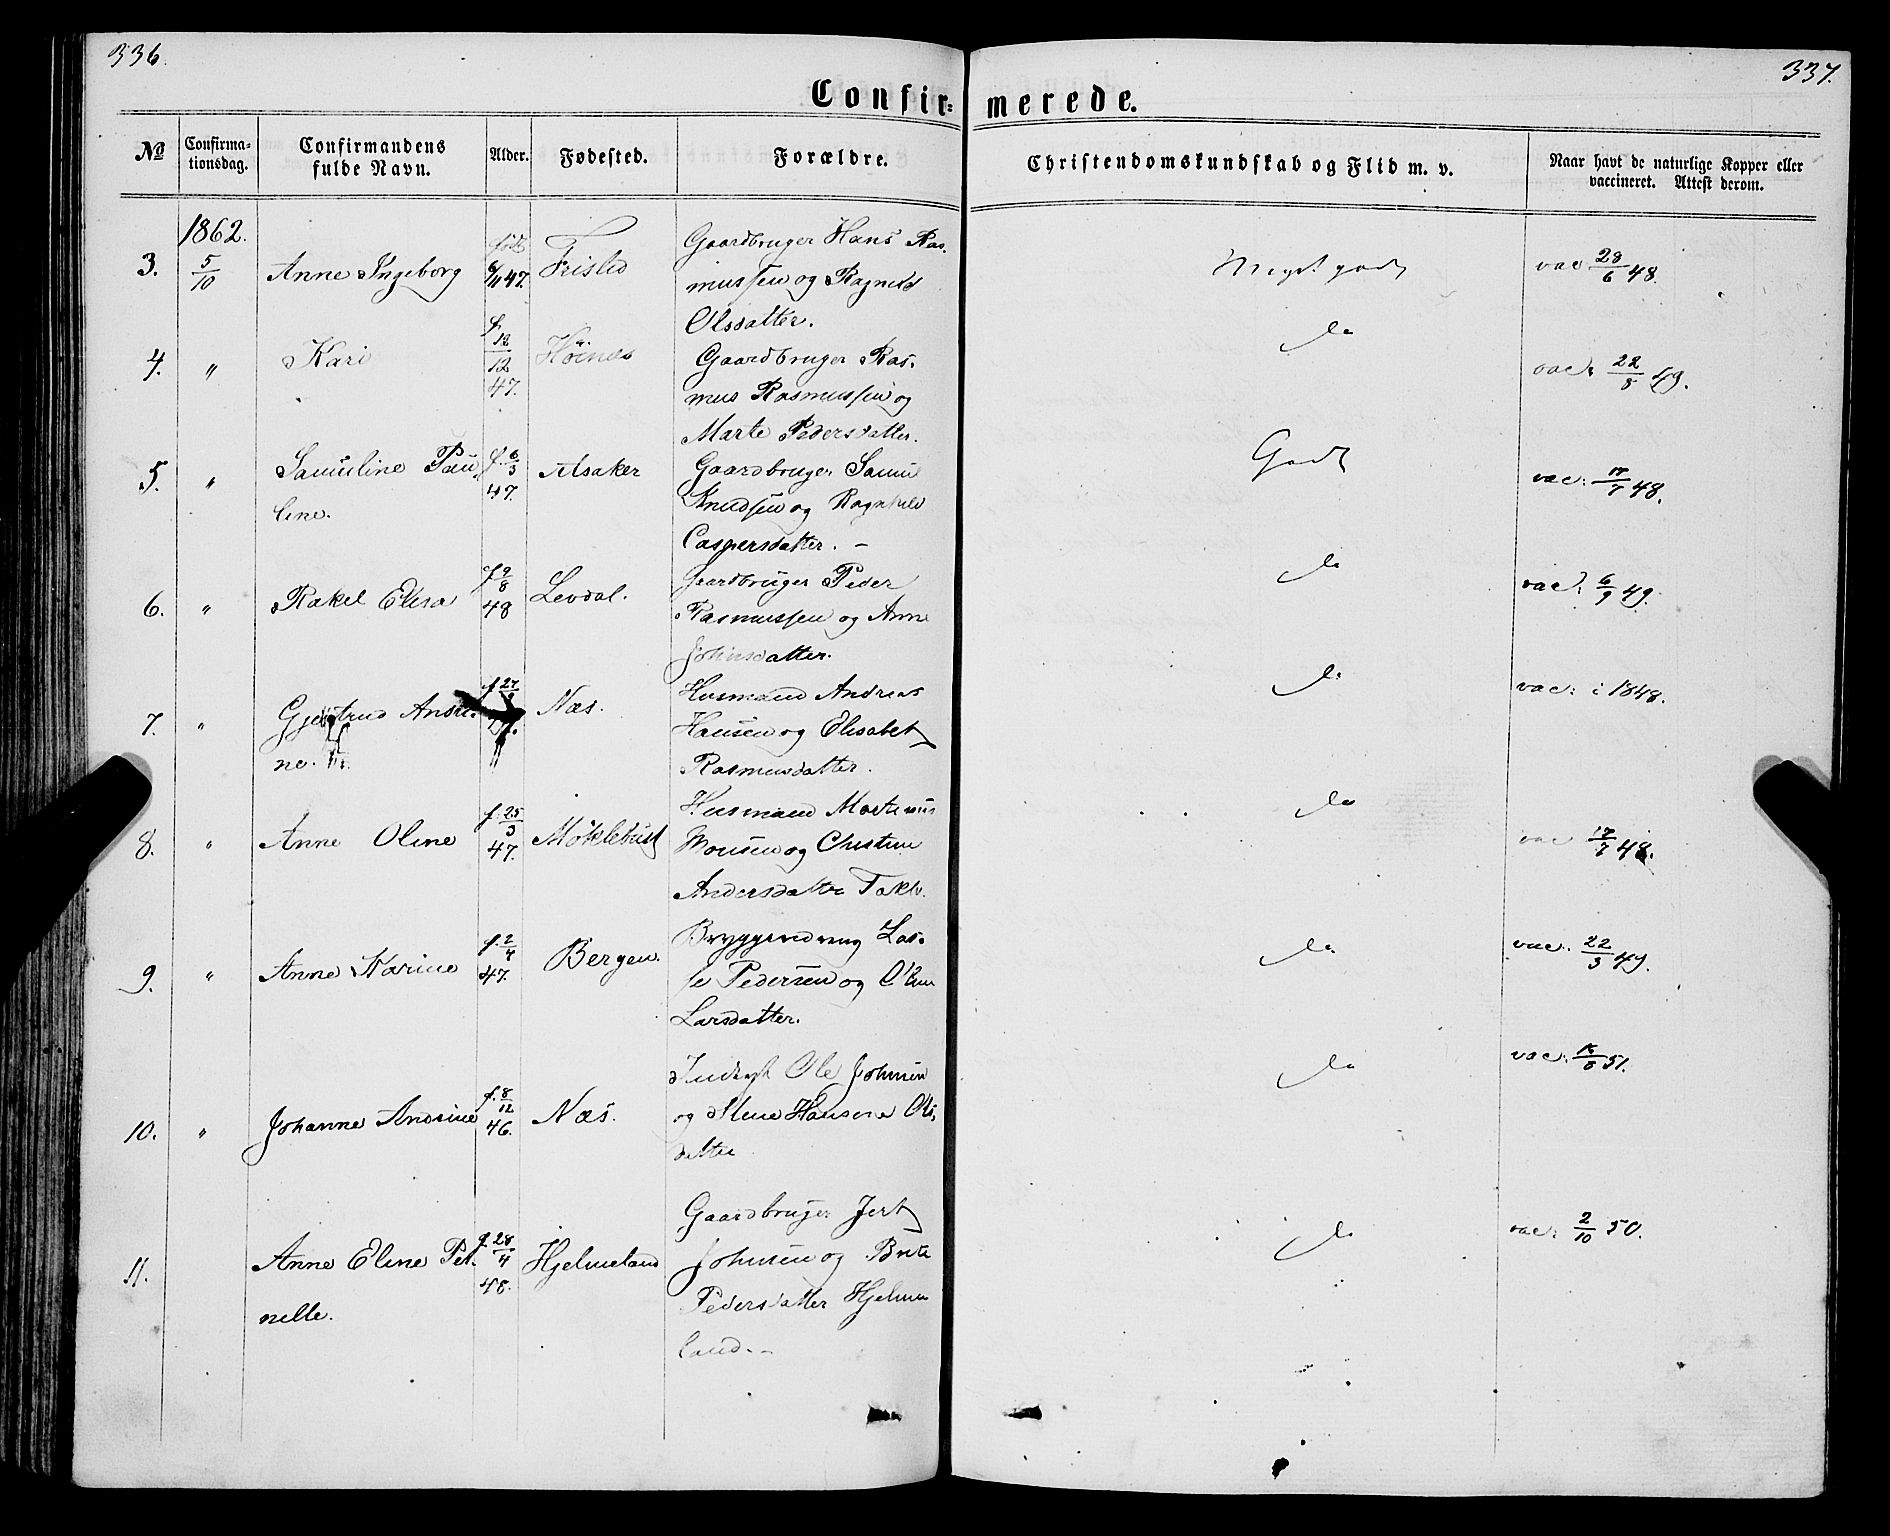 336.
337.
Confir= merede.
No
Confirma-
tionsdag.
Confirmandens
fulde Navn.
Alder.
Fødested.
Forældre.
Christendomskundskab og Flid m. v.
Naar havt de naturlige Kopper eller
vaccineret. Attest derom.
1862.
3. 5/10 Anne Ingeborg født 6/11 47. Fristed
Gaardbruger Hans Ras-
mussen og Ragnild
Olsdatter.
Meget godt
vac 28/6 48.
4. " Kari f 12/12 47. Höinæs
Gaardbruger Ras-
mus Rasmussen og
Marte Pedersdatter.
do
vac: 22/8 49.
5. " Samuline Pau-
line. f. 6/3 47. Alsaker
Gaardbruger Samul
Knudsen og Ragnhild
Caspersdatter. –
Godt
vac: 17/7 48.
6. " Rakel Elisa f 9/8 48 Levdal.
Gaardbruger Peder
Rasmussen og Anne
Johnsdatter.
do
vac: 6/9 49.
7. " Gjertrud Andri-
ne. f. 27/ Næs.
Husmand Andreas
Hansen og Elisabet
Rasmusdatter.
do
vac: i 1848.
8. " Anne Oline f. 25/3 47. Möklebust
Husmand Martinus
Monsen og Christine
Andersdatter Takle.
do
vac 17/7 48.
9. " Anne Karine f. 2/4 47. Bergen.
Las-
se Pedersen og
Larsdatter.
do
vac: 22/3 49.
10. " Johanne Andrine f. 8/12 46. Næs.
Inderst Ole Johnsen
og Stine Hansine Ols-
datter
do
vac: 51.
11. Anne Eline Pet-
nelle. f 28/4 48. Hjelmeland
Gaardbruger Jert
Johnsen og Brite
Pedersdatter Hjelme-
land. –
do
vac: 2/10 50.